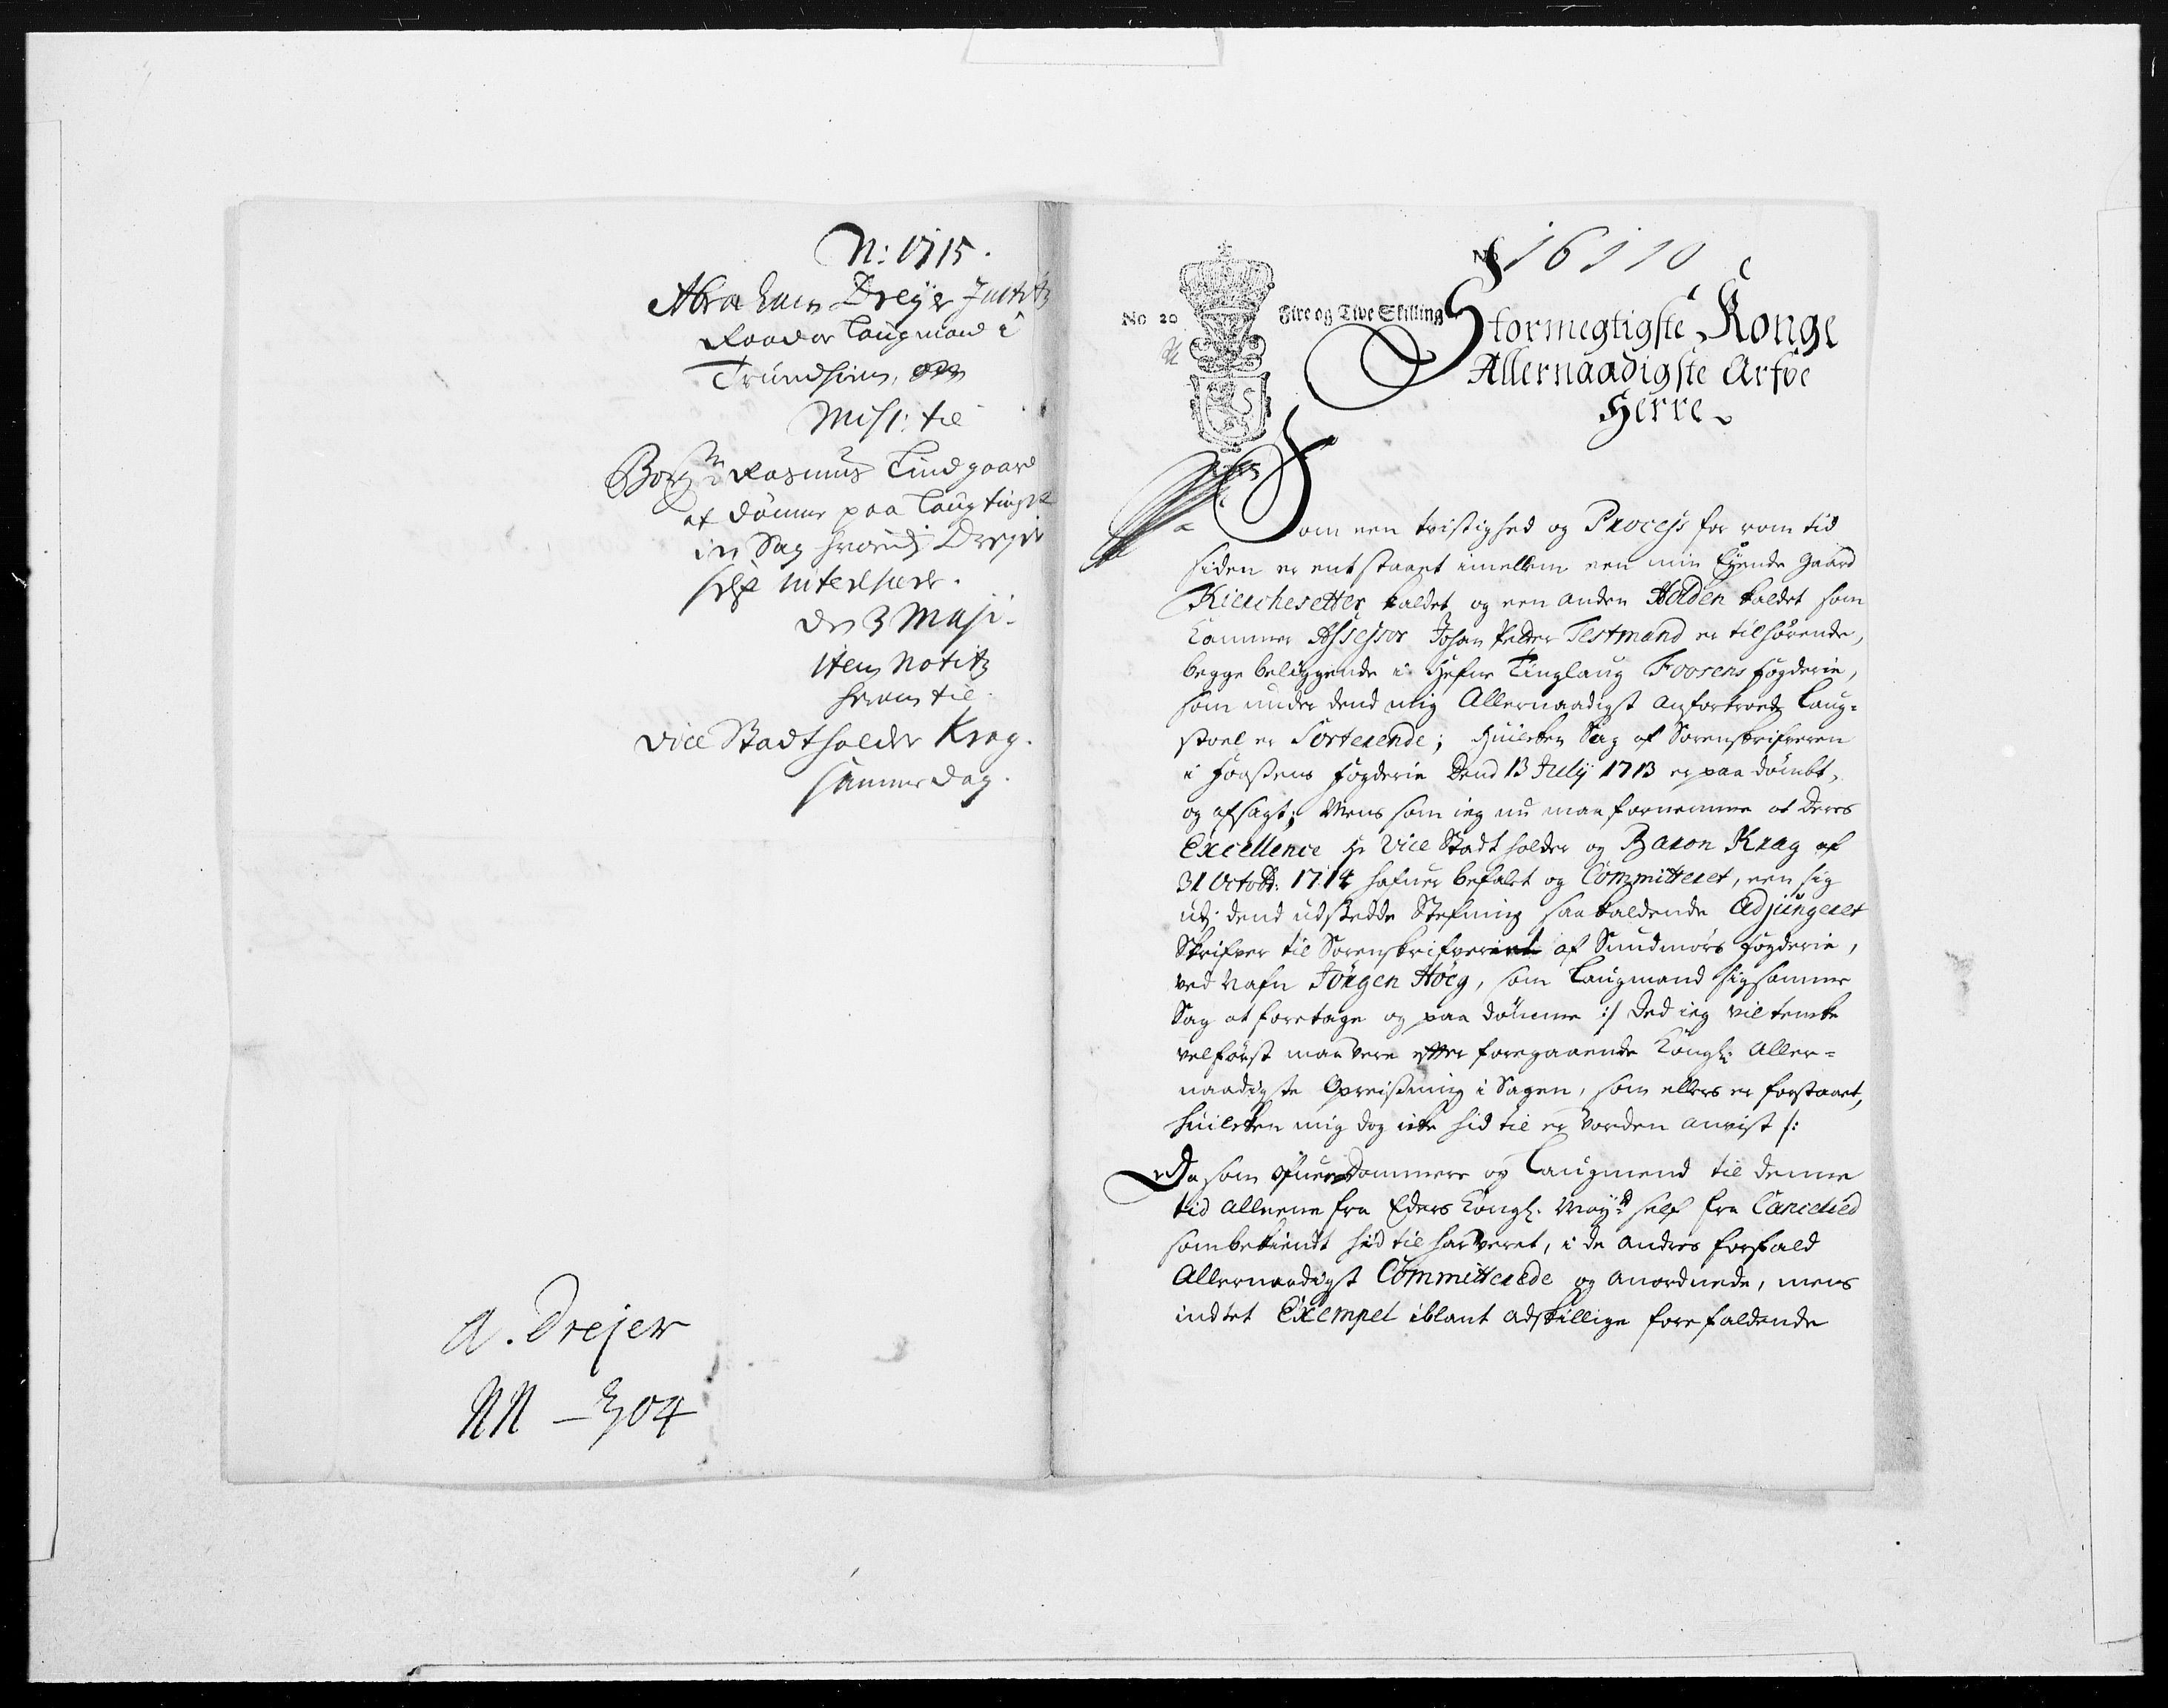 N: 1715.
Abraham Dreyer Justitz
Raad oc Laugmand i
Trundhiem,
Miss: til
Borgm Rasmus Lindgaard
at dømme paa Laugtinget
in Sag hvorudj Dreyer
self interesserer.
d: 3 Maji.
Item Notitz
herom til
Vice Stadtholder Krag.
samme dag.
A. Drejer
NN - 304
No 16110
No 20 Fire og Tive Skilling
Stormegtigste Konge
Allernaadigste Arfve
Herre
Som een tvistighed og Process for rom tid
siden er entstaaet imellem een min Eyende gaard
Kirchesetter kaldet, og een anden Holden kaldet som
Cammer Assessor Johan Peder Testmand er tilhørende,
begge beliggende i Hefne Tinglaug Foosens fogderie,
som under dend mig Allernaadigst anfortroede Laug-
stoel er Sorterende; huilcken Sag af Sorenskrifveren
i Foosens fogderie dend 13 July 1713 er paa dømbt,
og afsagt; Mens som ieg nu maa fornemme at deres
Excellence Hr Vice Stadtholder og Baron Krag af
31 Octobr: 1714 hafuer befalet og Committeret, een sig
udj dend udstedde Stefning saa kaldende Adjungeret
Skrifver til Sorenskrifveriet af Sundmørs fogderie,
ved Nafn Jørgen Høeg, som Laugmand sig samme
Sag at foretage og paa dømme :/ Ded ieg vil tencke
vel først maa vere efter foregaaende Kongl: Aller-
naadigste Opreisning i Sagen, som ellers er forstaaet,
huilcken mig dog icke hid til er vorden anvist /:
Da som ofuer Dommere og Laugmend til denne
tid alleene fra Eders Kongl. May:tt self fra Cancelied
som bekiendt hid til har veret, i de andres forfald
Allernaadigst Committerede og anordnede, mens
indtet Exempel iblant adskillige forefaldende